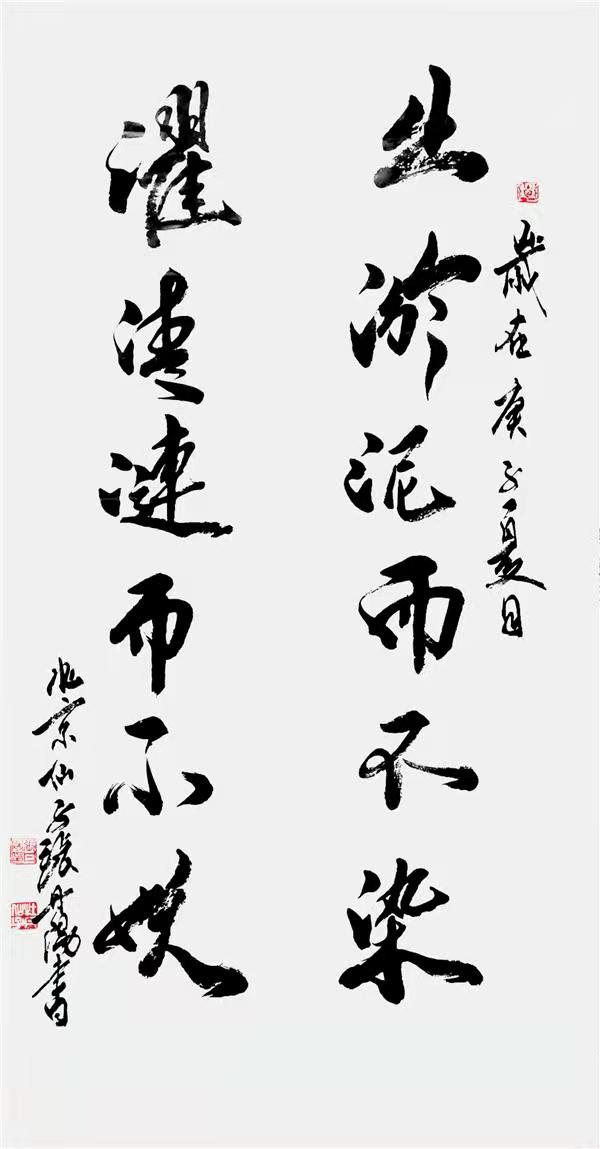 歲在庚子夏日
出淤泥而不染
濯清漣而不妖
北京仙子張丹陽書